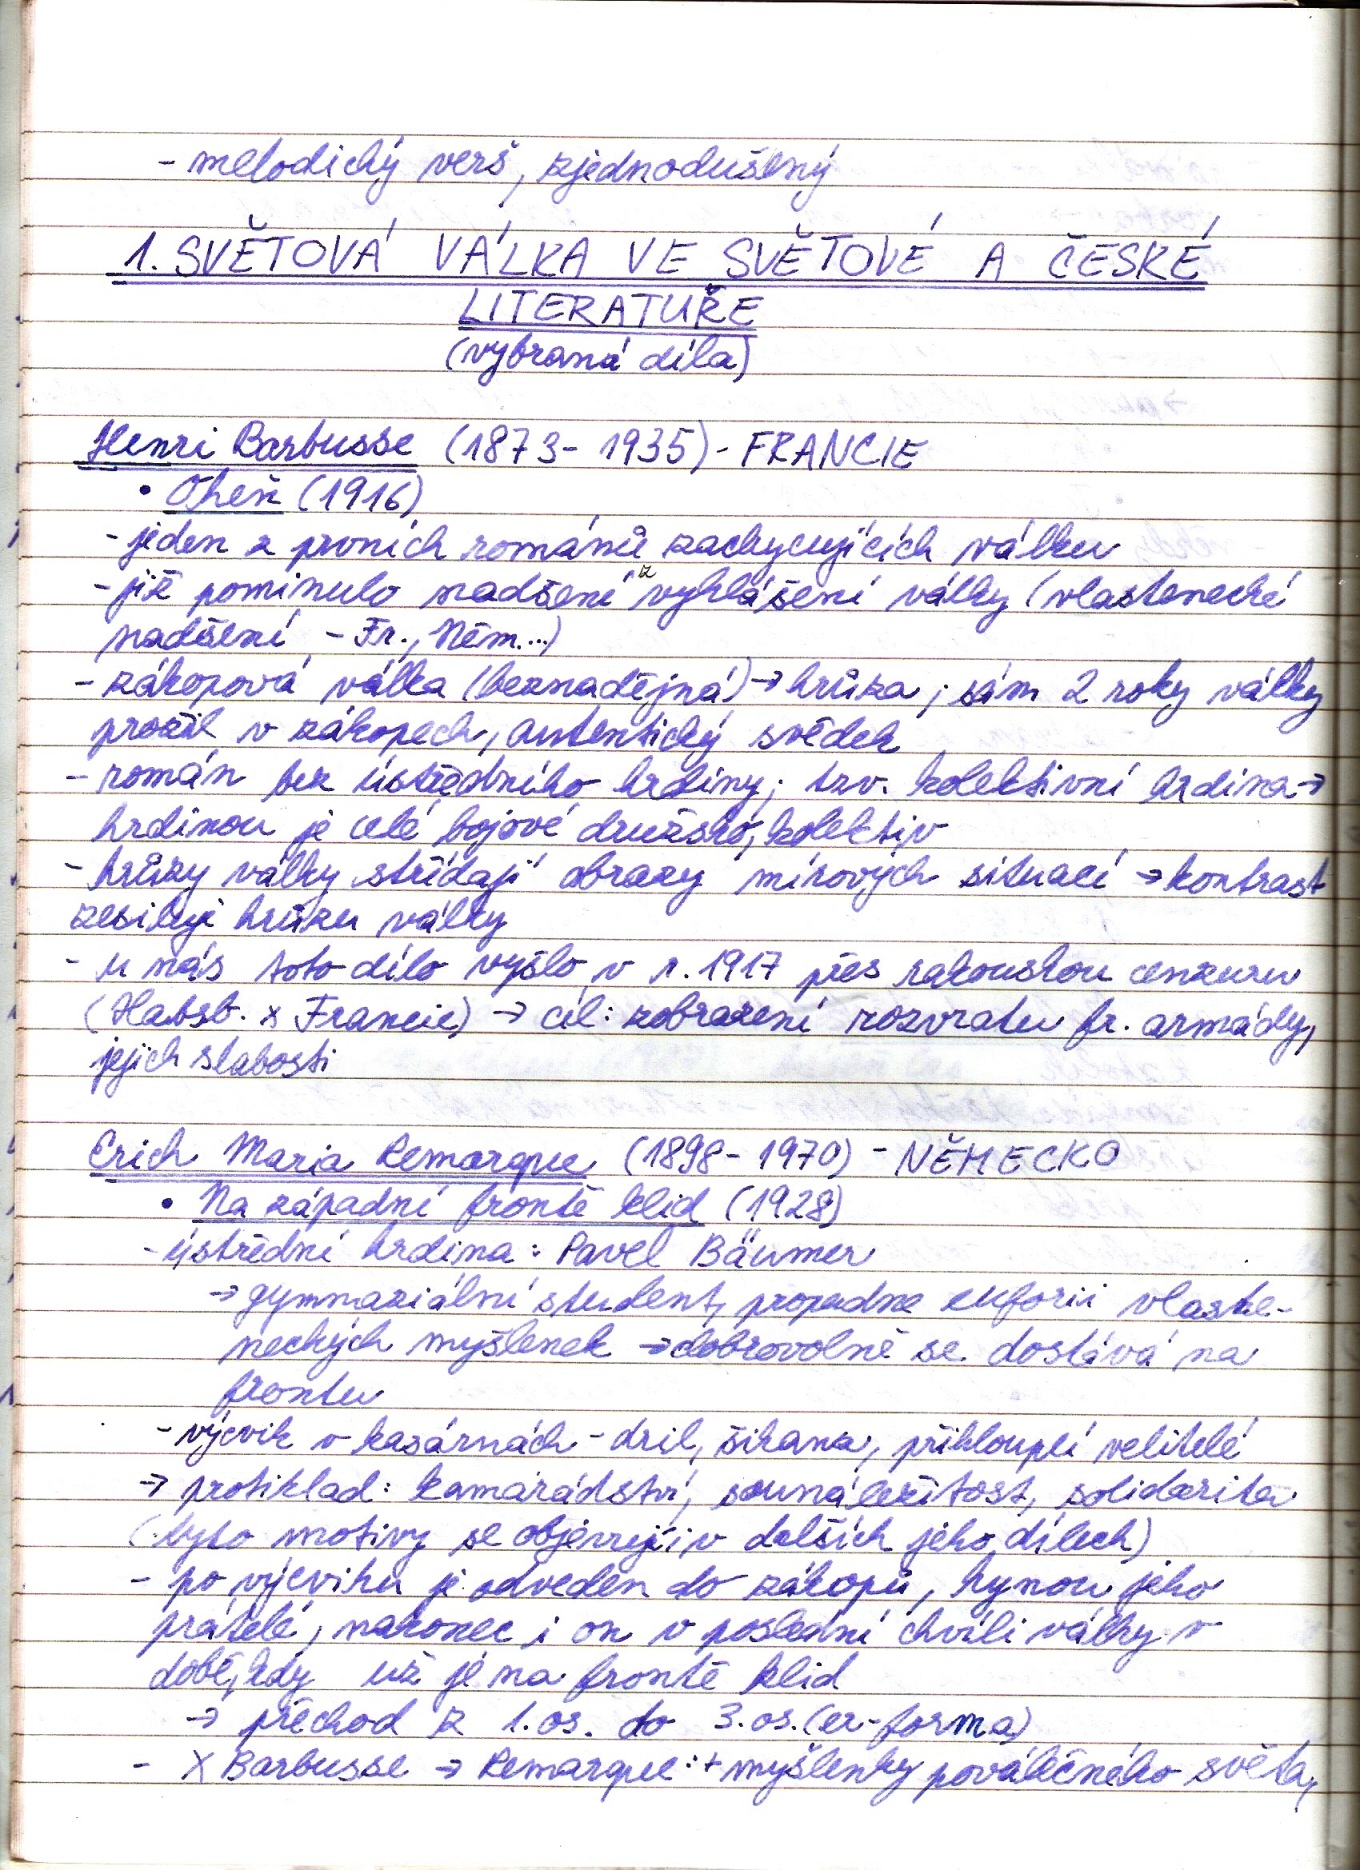 - melodický verš, zjednodušený
1. SVĚTOVÁ VÁLKA VE SVĚTOVÉ A ČESKÉ
LITERATUŘE
(vybraná díla)
Henri Barbusse (1873 - 1935) - FRANCIE
• Oheň (1916)
- jeden z prvních románů zachycujících válku
- již pominulo nadšení z vyhlášení války (vlastenecké
nadšení - Fr., Něm...)
- zákopová válka (beznadějná) → hrůza; sám 2 roky války
prožil v zákopech, autentický svědek
- román bez ústředního hrdiny; tzv. kolektivní hrdina →
hrdinou je celé bojové družstvo, kolektiv
- hrůzy války střídají obrazy mírových situací → kontrast
zesiluje hrůzu války
- u nás toto dílo vyšlo v r. 1917 přes rakouskou cenzuru
(Habsb. x Francie) → cíl: zobrazení rozvratu fr. armády,
jejich slabosti
Erich Maria Remarque (1898 - 1970) - NĚMECKO
• Na západní frontě klid (1928)
- ústřední hrdina: Pavel Bäumer
→ gymnaziální student, propadne euforii vlaste-
neckých myšlenek → dobrovolně se dostává na
frontu
- výcvik v kasárnách - dril, šikana, přihlouplí velitelé
→ protiklad: kamarádství, sounáležitost, solidarita
(tyto motivy se objevují i v dalších jeho dílech)
- po výcviku je odveden do zákopů, hynou jeho
přátelé, nakonec i on v poslední chvíli války v
době, kdy už je na frontě klid
→ přechod z 1. os. do 3. os. (er-forma)
- X Barbusse → Remarque: + myšlenky poválečného světa,